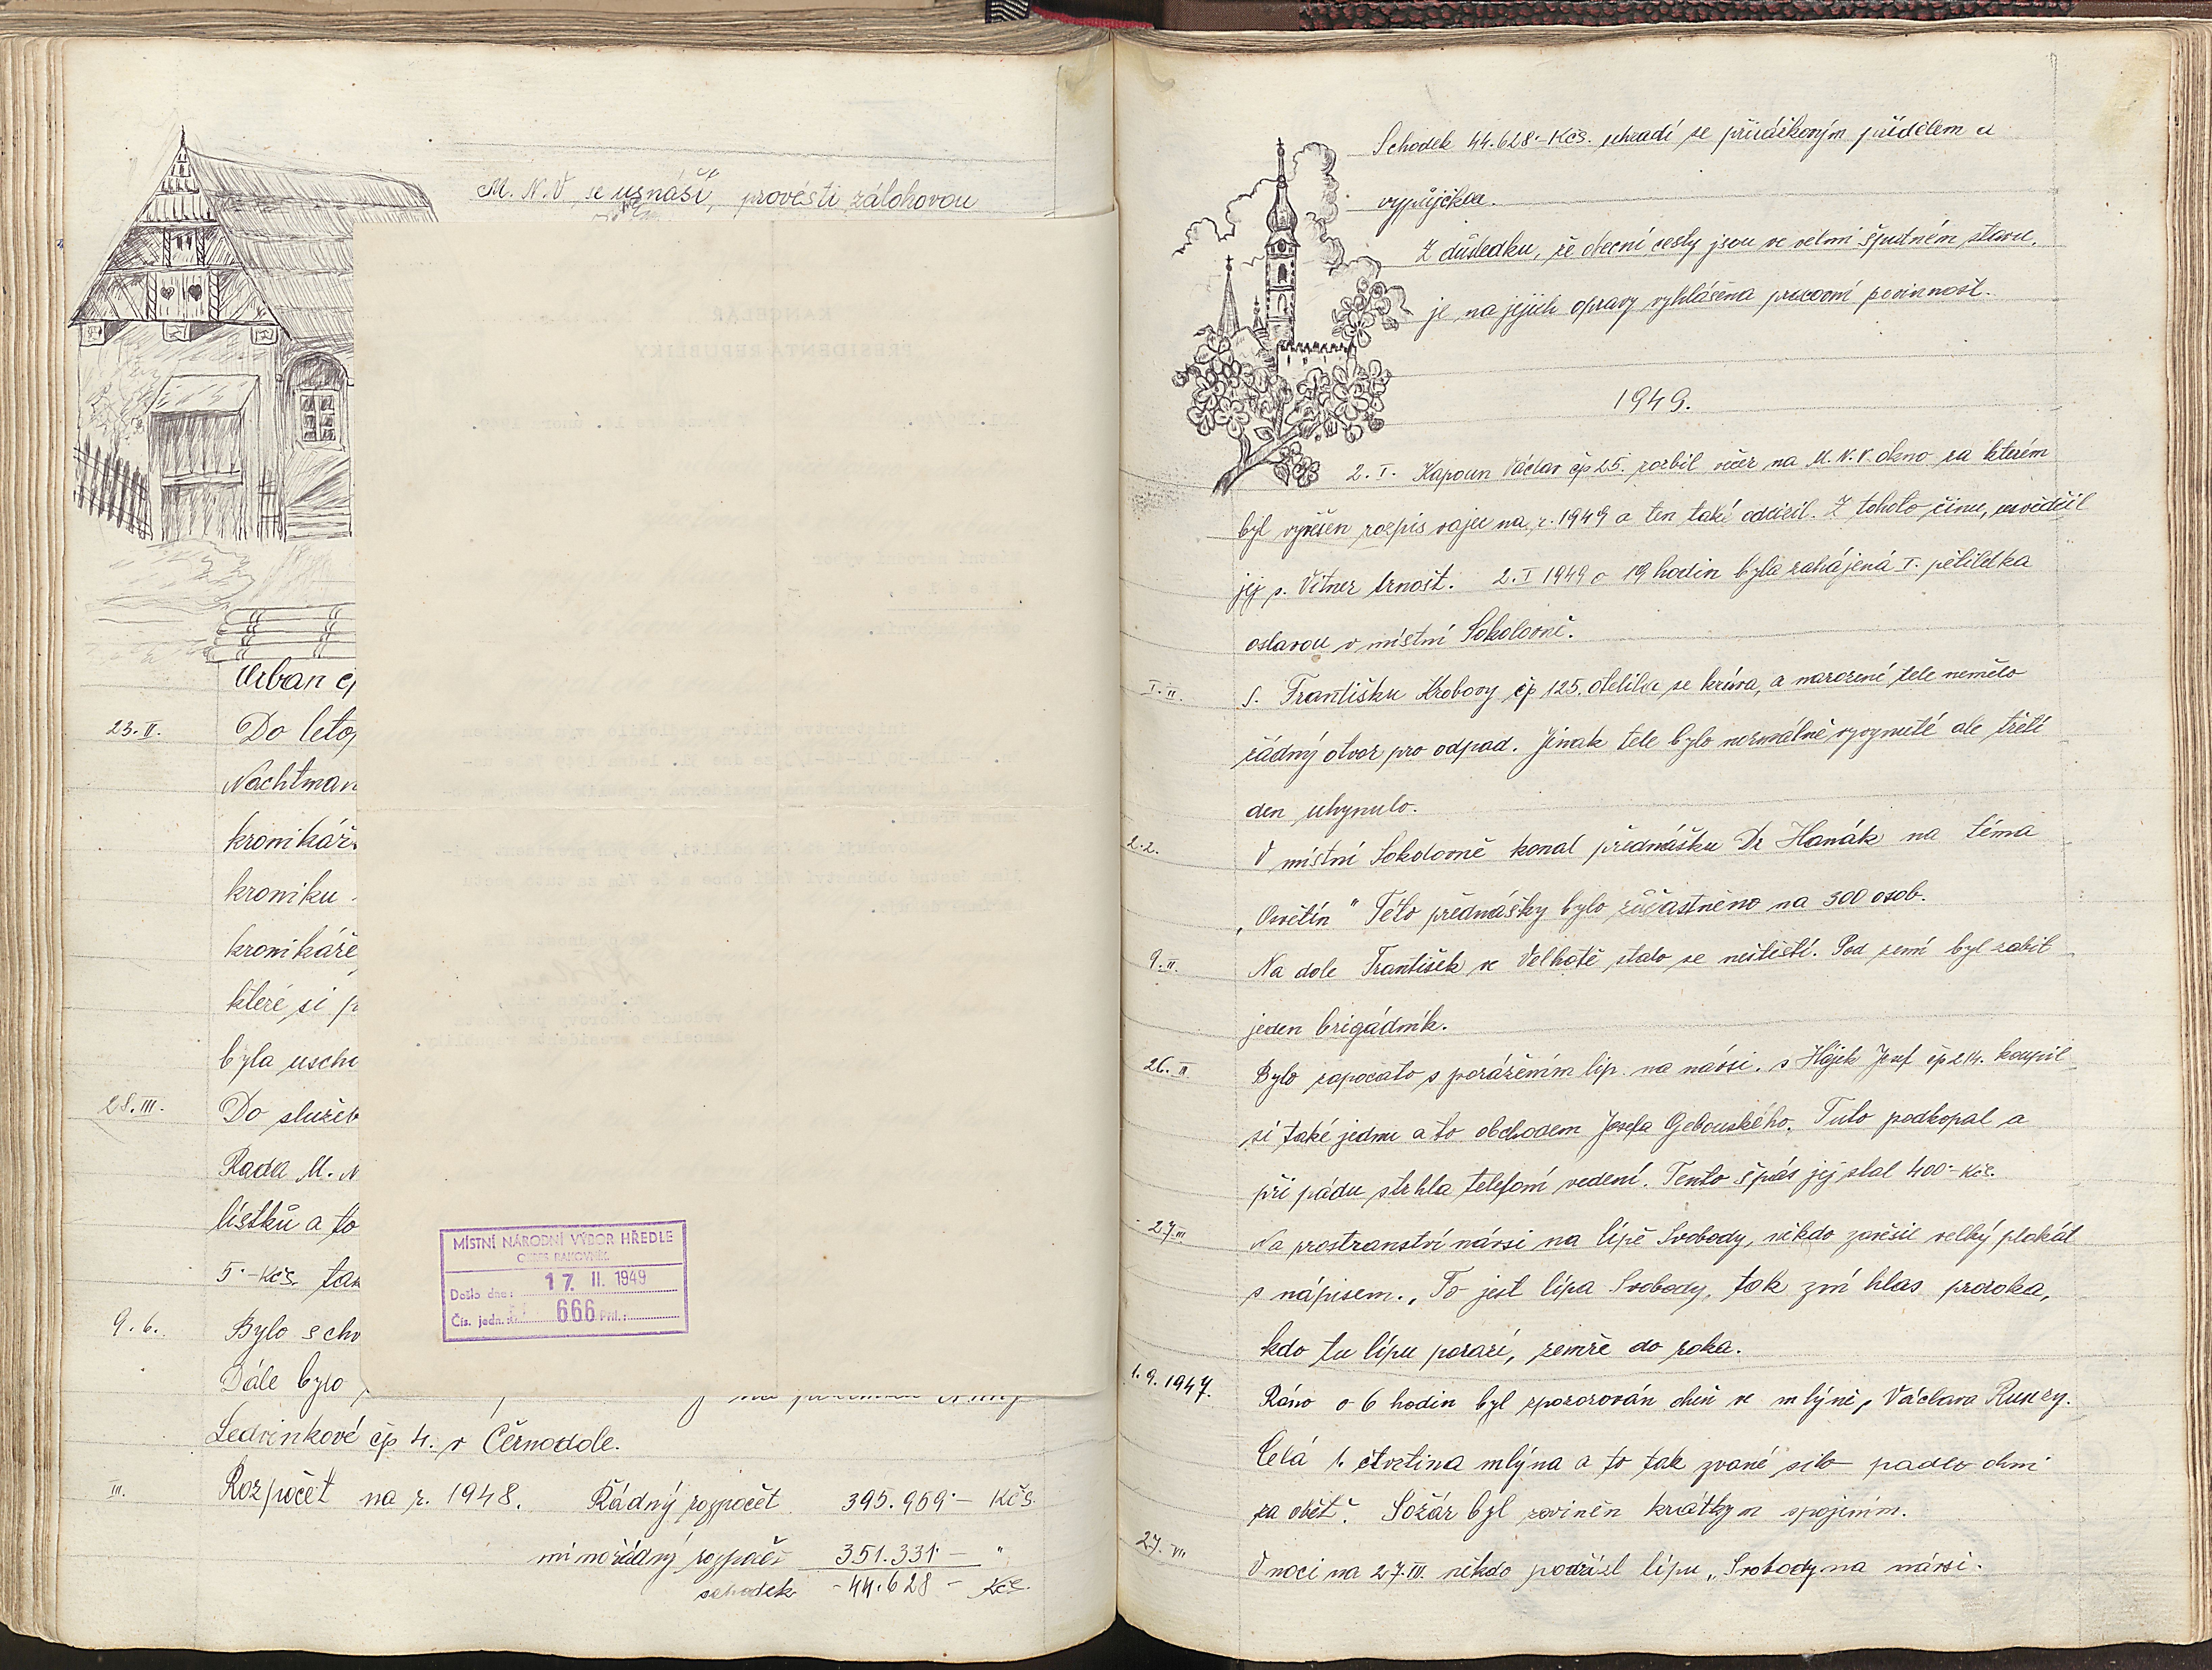 M. N. V se usnáší, provésti zálohovou
Urban čp
23. II. Do letop
Nachtman
kronikář
kroniku
kronikáře
které si p
byla uscho
28. III. Do služeb
Rada M. N
lístků a to
5·- Kčs. tak
9. 6. Bylo schv
Dále bylo
Ledvinkové čp 4. v Černodole.
III. Rozpočet na r. 1948. Řádný rozpočet 395.959·- Kčs.
mimořádný rozpočet 351.331·- "
schodek -44.628 - Kčs.
KANCELÁŘ
PRESIDENTA REPUBLIKY
MÍSTNÍ NÁRODNÍ VÝBOR HŘEDLE
OKRES RAKOVNÍK
Došlo dne: 17. II. 1949
Čís. jedn.: 666 Příl.:
Schodek 44.628·- Kčs. uhradí se přirážkovým přídělem a
vypůjčkou.
Z důsledku, že obecní cesty jsou ve velmi špatném stavu,
je na jejich opravy vyhlášena pracovní povinnost.
1949.
2. I. Kapoun Václav čp 25. rozbil večer na M. N. V. okno za kterém
byl vyvěšen rozpis vajec na r. 1949 a ten také odcizil. Z tohoto činu, usvědčil
jej s. Vitner Arnošt. 2. I 1949 o 19 hodin byla zahájená I. pětiletka
oslavou v místní Sokolovně.
I. II. S. Františku Krobovy čp 125. otelila se kráva, a narozené tele nemělo
řádný otvor pro odpad. Jinak tele bylo normálně vyvynuté ale třetí
den uhynulo.
2. 2. V místní Sokolovně konal přednášku Dr Hanák na téma
„Osvětín" Této přednášky bylo zůčastněno na 300 osob.
9. II. Na dole František ve Velhotě stalo se neštěstí. Pod zemí byl zabit
jeden brigádník.
26. II Bylo započato s porážením lip na návsi. s Hájek Josef čp 214. koupil
si také jednu a to obchodem Josefa Gebouského. Tuto podkopal a
při pádu strhla telefoní vedení. Tento špás jej stal 400·- Kčs.
27. III Na prostranství návsi na lípě Svobody, někdo zavěsil velký plakát
s nápisem. „To jest lípa Svobody, tak zní hlas proroka,
kdo tu lípu porazí, zemře do roka.
1. 9. 1947. Ráno o 6 hodin byl zpozorován oheň ve mlýně, Václava Runzy.
Celá 1. čtvrtina mlýna a to tak zvané silo padlo ohni
za oběť. Požár byl zaviněn krátkym spojením.
27. III. V noci na 27. III. někdo podřízl lípu „Svobody na návsi.